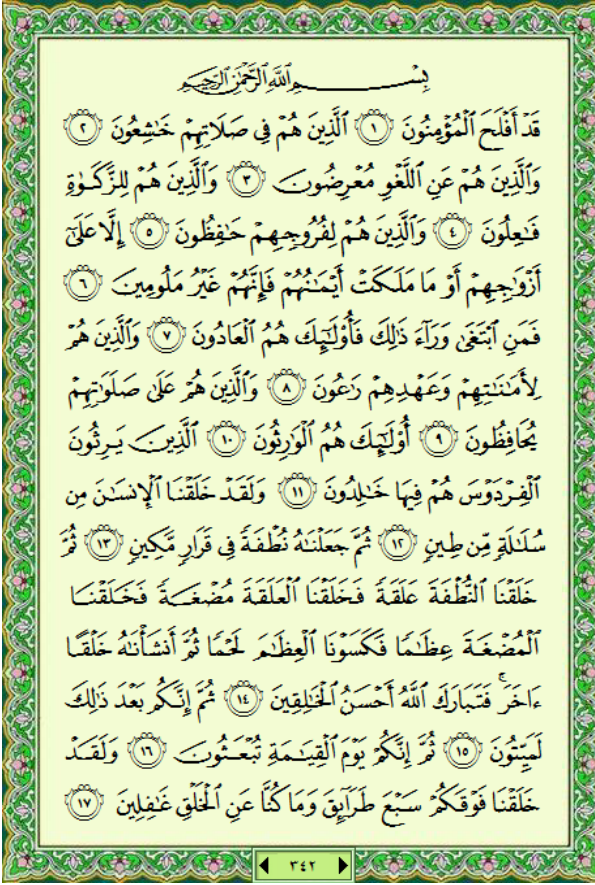 بِسْمِ اللَّهِ الرَّحْمَٰنِ الرَّحِيمِ
قَدْ أَفْلَحَ الْمُؤْمِنُونَ ١ الَّذِينَ هُمْ فِي صَلَاتِهِمْ خَٰشِعُونَ ٢
وَالَّذِينَ هُمْ عَنِ اللَّغْوِ مُعْرِضُونَ ٣ وَالَّذِينَ هُمْ لِلزَّكَوٰةِ
فَٰعِلُونَ ٤ وَالَّذِينَ هُمْ لِفُرُوجِهِمْ حَٰفِظُونَ ٥ إِلَّا عَلَىٰٓ
أَزْوَٰجِهِمْ أَوْ مَا مَلَكَتْ أَيْمَٰنُهُمْ فَإِنَّهُمْ غَيْرُ مَلُومِينَ ٦
فَمَنِ ابْتَغَىٰ وَرَآءَ ذَٰلِكَ فَأُو۟لَٰٓئِكَ هُمُ الْعَادُونَ ٧ وَالَّذِينَ هُمْ
لِأَمَٰنَٰتِهِمْ وَعَهْدِهِمْ رَٰعُونَ ٨ وَالَّذِينَ هُمْ عَلَىٰ صَلَوَٰتِهِمْ
يُحَافِظُونَ ٩ أُو۟لَٰٓئِكَ هُمُ الْوَٰرِثُونَ ١٠ الَّذِينَ يَرِثُونَ
الْفِرْدَوْسَ هُمْ فِيهَا خَٰلِدُونَ ١١ وَلَقَدْ خَلَقْنَا الْإِنسَٰنَ مِن
سُلَٰلَةٍ مِّن طِينٍ ١٢ ثُمَّ جَعَلْنَٰهُ نُطْفَةً فِي قَرَارٍ مَّكِينٍ ١٣ ثُمَّ
خَلَقْنَا النُّطْفَةَ عَلَقَةً فَخَلَقْنَا الْعَلَقَةَ مُضْغَةً فَخَلَقْنَا
الْمُضْغَةَ عِظَٰمًا فَكَسَوْنَا الْعِظَٰمَ لَحْمًا ثُمَّ أَنشَأْنَٰهُ خَلْقًا
ءَاخَرَ ۚ فَتَبَارَكَ اللَّهُ أَحْسَنُ الْخَٰلِقِينَ ١٤ ثُمَّ إِنَّكُم بَعْدَ ذَٰلِكَ
لَمَيِّتُونَ ١٥ ثُمَّ إِنَّكُمْ يَوْمَ الْقِيَٰمَةِ تُبْعَثُونَ ١٦ وَلَقَدْ
خَلَقْنَا فَوْقَكُمْ سَبْعَ طَرَآئِقَ وَمَا كُنَّا عَنِ الْخَلْقِ غَٰفِلِينَ ١٧
٣٤٢